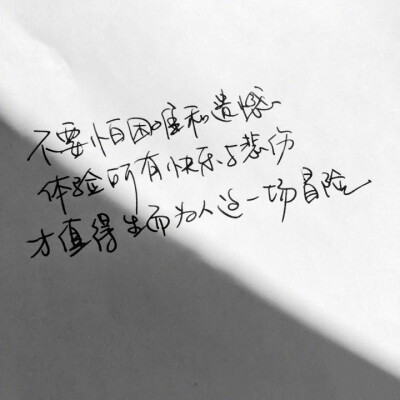 不要怕困难和遗憾
体验所有快乐与悲伤
才值得生而为人这一场冒险